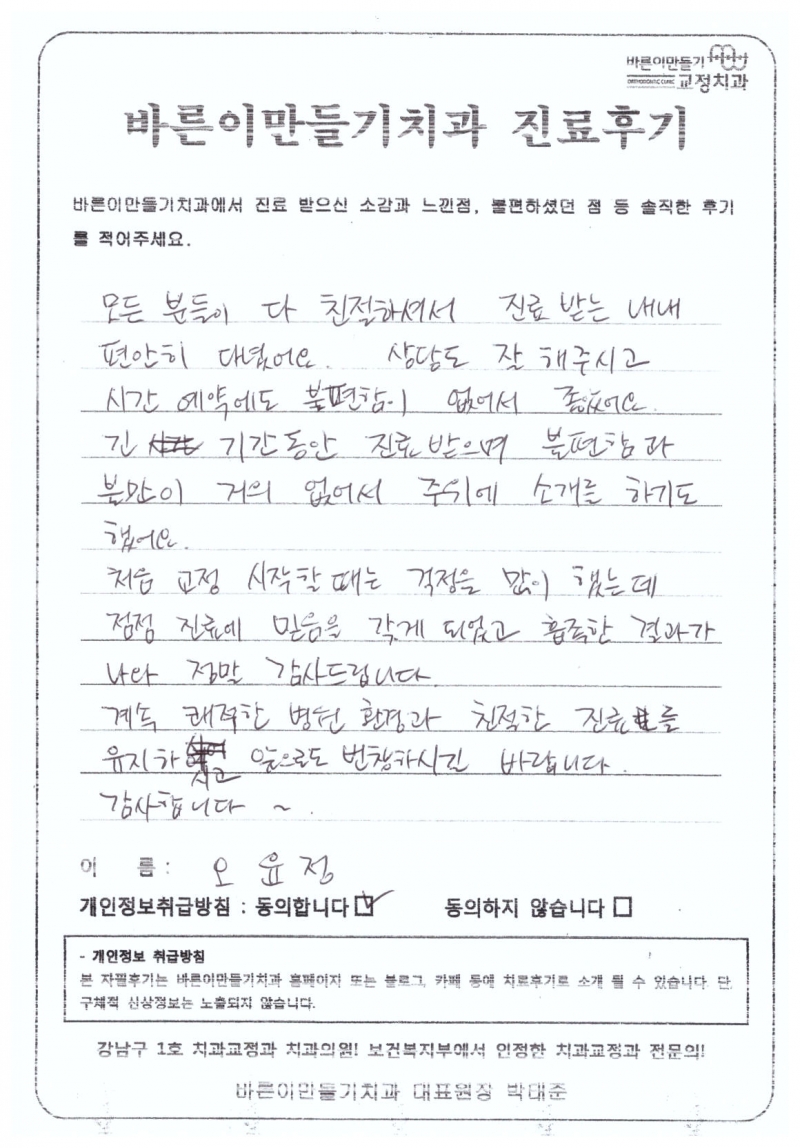 바른이만들기
ORTHODONTIC CLINIC 교정치과
바른이만들기치과 진료후기
바른이만들기치과에서 진료 받으신 소감과 느낀점, 불편하셨던 점 등 솔직한 후기
를 적어주세요.
모든 분들이 다 친절하셔서 진료 받는 내내
편안히 다녔어요. 상담도 잘 해주시고
시간 예약에도 불편함이 없어서 좋았어요.
긴 기간동안 진료 받으며 불편함과
불만이 거의 없어서 주위에 소개를 하기도
했어요.
처음 교정 시작할 때는 걱정을 많이 했는데
점점 진료에 믿음을 갖게 되었고 흡족한 결과가
나와 정말 감사드립니다.
계속 쾌적한 병원 환경과 친절한 진료를
유지하시고 앞으로도 번창하시길 바랍니다.
감사합니다 ~.
이 름 : 오윤정
개인정보취급방침 : 동의합니다 ☑ 동의하지 않습니다 □
- 개인정보 취급방침
본 자필후기는 바른이만들기치과 홈페이지 또는 블로그, 카페 등에 치료후기로 소개 될 수 있습니다. 단,
구체적 신상정보는 노출되지 않습니다.
강남구 1호 치과교정과 치과의원! 보건복지부에서 인정한 치과교정과 전문의!
바른이만들기치과 대표원장 박대준